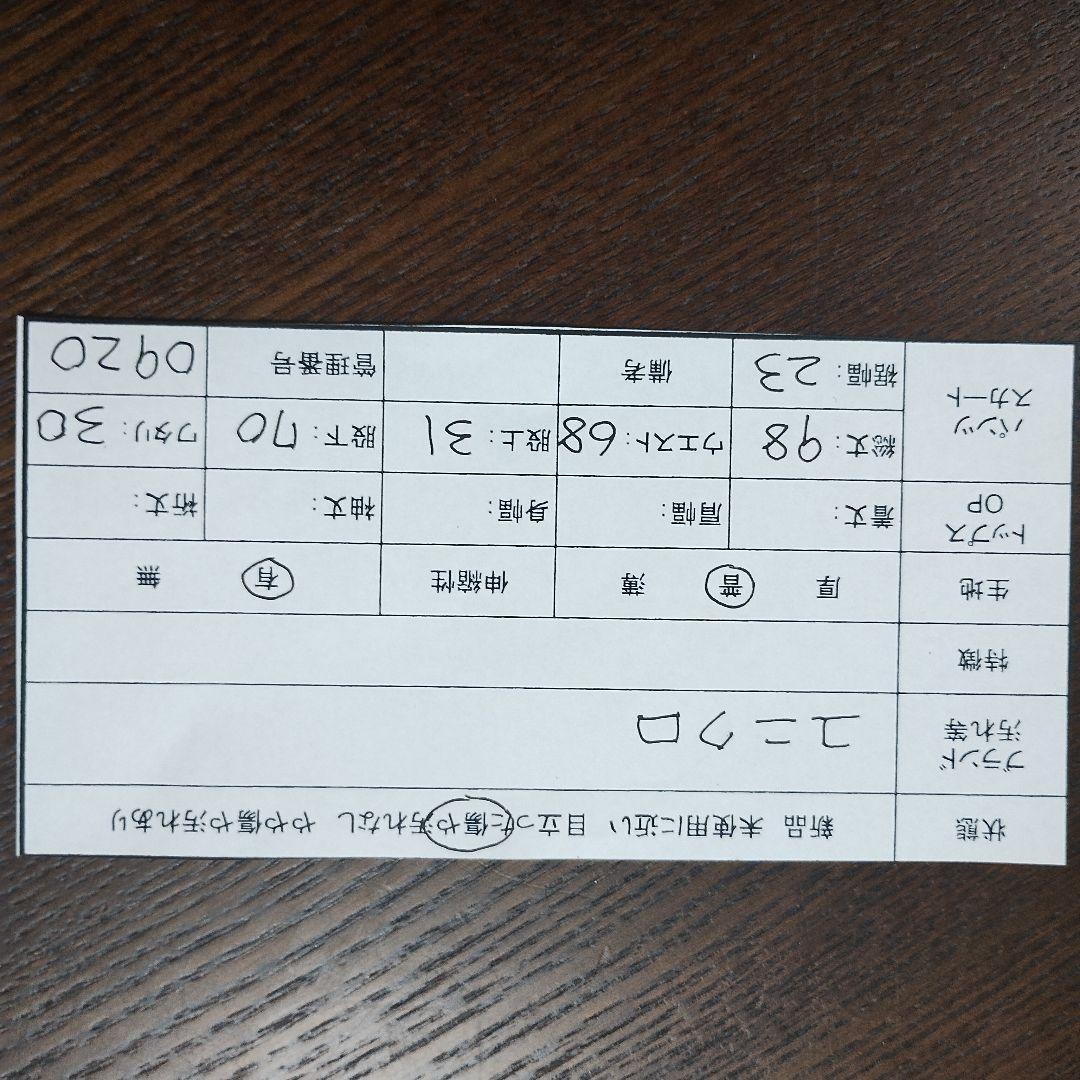 状態 新品 未使用に近い 目立った傷や汚れなし やや傷や汚れあり
ブランド
汚れ等 ユニクロ
特徴
生地 厚 普 薄 伸縮性 有 無
トップス
OP 着丈: 肩幅: 身幅: 袖丈: 裄丈:
パンツ
スカート
総丈: 98 ウエスト: 68 股上: 31 股下: 70 ワタリ: 30
裾幅: 23 備考 管理番号 0920